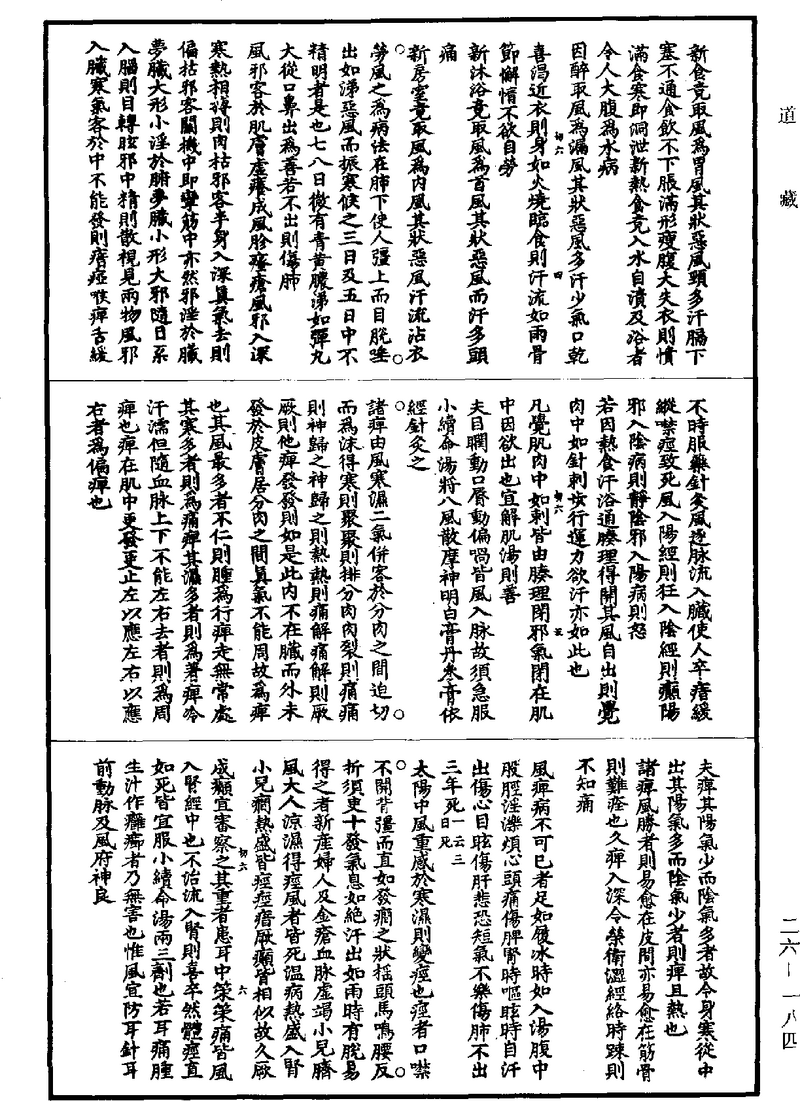 道藏
新食竟取風為胃風其狀惡風頸多汗膈下
塞不通食飲不下脹滿形瘦腹大失衣則憤
滿食寒即洞泄新熱食竟入水自漬及浴者
令人大腹為水病
因醉取風為漏風其狀惡風多汗少氣口乾
喜渴近衣則身如火燒臨食則汗流如雨骨
節懈惰不欲自勞
新沐浴竟取風為首風其狀惡風而汗多頭
痛
新房室竟取風為內風其狀惡風汗流沾衣
勞風之為病法在肺下使人彊上而目脫唾
出如涕惡風而振寒候之三日及五日中不
精明者是也七八日微有青黃膿涕如彈丸
大從口鼻出為善若不出則傷肺
風邪客於肌膚虛癢成風胗瘙瘡風邪入深
寒熱相搏則肉枯邪客半身入深真氣去則
偏枯邪客關機中即攣筋中亦然邪淫於臟
夢臟大形小淫於腑夢臟小形大邪隨目系
入腦則目轉眩邪中精則散視見兩物風邪
入臟寒氣客於中不能發則瘖瘂喉痹舌緩
不時服藥針灸風逐脈流入臟使人卒瘖緩
縱噤痙致死風入陽經則狂入陰經則癲陽
邪入陰病則靜陰邪入陽病則怒
若因熱食汗浴通腠理得開其風自出則覺
肉中如針刺步行運力欲汗亦如此也
凡覺肌肉中如刺皆由腠理閉邪氣閉在肌
中因欲出也宜解肌湯則善
夫目瞤動口唇動偏喎皆風入脈故須急服
小續命湯將八風散摩神明白膏丹參膏依
經針灸之
諸痹由風寒濕二氣併客於分肉之間迫切
而為沫得寒則聚聚則排分肉肉裂則痛痛
則神歸之神歸之則熱熱則痛解痛解則厥
厥則他痹發發則如是此內不在臟而外未
發於皮膚居分肉之間真氣不能周故為痹
也其風最多者不仁則腫為行痹走無常處
其寒多者則為痛痹其濕多者則為著痹冷
汗濡但隨血脈上下不能左右去者則為周
痹也痹在肌中更發更止左以應左右以應
右者為偏痹也
夫痹其陽氣少而陰氣多者故令身寒從中
出其陽氣多而陰氣少者則痹且熱也
諸痹風勝者則易愈在皮間亦易愈在筋骨
則難痊也久痹入深令榮衛澀經絡時踈則
不知痛
風痹病不可已者足如履冰時如入湯腹中
股脛淫濼煩心頭痛傷脾腎時嘔眩時自汗
出傷心目眩傷肝悲恐短氣不樂傷肺不出
三年死一云三日死
太陽中風重感於寒濕則變痙也痙者口噤
不開背彊而直如發癇之狀搖頭馬鳴腰反
折須臾十發氣息如絕汗出如雨時有脫易
得之者新產婦人及金瘡血脈虛竭小兒臍
風大人涼濕得痙風者皆死溫病熱盛入腎
小兒癇熱盛皆痙痙瘖厥癲皆相似故久厥
成癲宜審察之其重者患耳中策策痛皆風
入腎經中也不治流入腎則喜卒然體痙直
如死皆宜服小續命湯兩三劑也若耳痛腫
生汁作癰癤者乃無害也惟風宜防耳針耳
前動脈及風府神良
二六—一八四